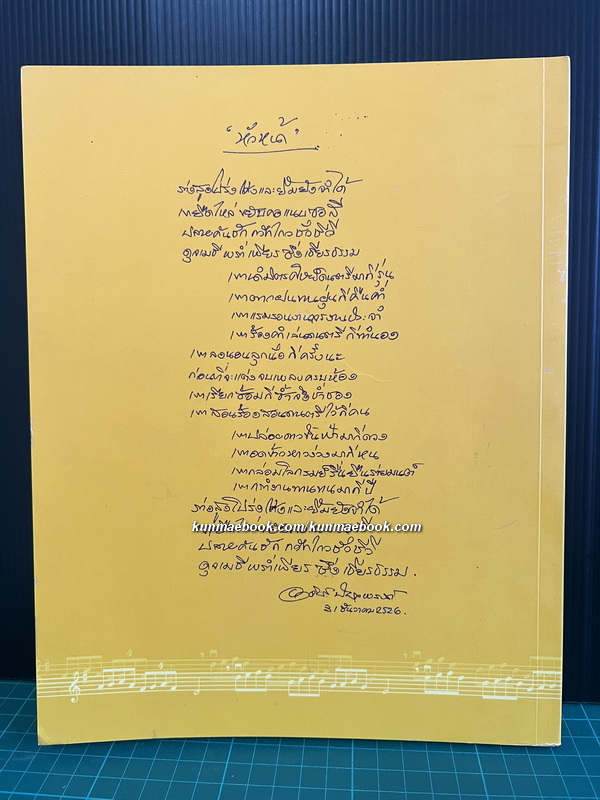 "หัวหน้า"
ร่างสูงโปร่ง และยิ้มยังจำได้
ท่ายืดไหล่ ขยับคอแนบซอสี
ปลายคันชัก กวักไกวชั่วชีวี
ดุจเมธี พร่ำเพียร ซึ่งเธียรธรรม
เขา มากี่รุ่น
เขาตากฝนทนฝุ่นกี่คืนค่ำ
เขาแรมรอนงานจรงานประจำ
เขาร้องคำเล่นดนตรีกี่ทำนอง
เขาลงนอนลุกนั่งกี่ครั้งนะ
ก่อนที่จะแต่งจบเพลงครบห้อง
เขาเรียกซ้อมกี่ซ้ำจึงช่ำชอง
เขาสอนร้องสอนดนตรีไว้กี่คน
เขาปล่อยดาวขึ้นฟ้ามากี่ดวง
เขาอดห้าวหาวง่วงมากี่หน
เขากล่อมโลกรมย์รื่นยืนร่ายมนต์
เขาทำงานทานทนมากี่ปี
ร่างสูงโปร่ง และยิ้มยังจำได้
kunmaebook.com/kunmaebook.com
ปลายคันชัก กวักไกวชั่วชีวี
ดุจเมธี พร่ำเพียร ซึ่งเธียรธรรม.
31 ธันวาคม 2526.